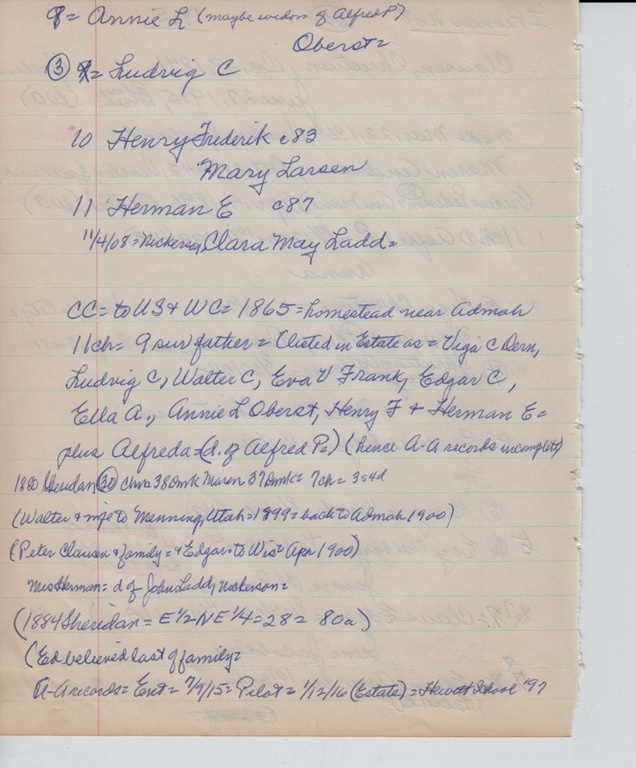 8= Annie L (maybe widow of Alfred P)
Oberst=
③ 9= Ludvig C
10 Henry Frederik c83
Mary Larsen
11 Herman E c87
11/4/08=Nickerson, Clara May Ladd=
CC= to US & WC= 1865= homestead near Admah
11ch= 9 sur father= (listed in Estate as= Viga C Dern,
Ludvig C, Walter C, Eva V Frank, Edgar C,
Ella A., Annie L Oberst, Henry F & Herman E=
plus Alfreda=(d. of Alfred P=) (hence A-A records incomplete)
1880 Sheridan 30 Chris 38Dmk Maren 37Dmk= 7ch= 3s4d
(Walter & wife to Menning, Utah=1899=back to Admah 1900)
(Peter Clausen & family= & Edgar=to Wis= Apr 1900)
Mrs Herman= d of John Ladd, Nickerson=
(1884 Sheridan= E½NE¼=28= 80a)
(Ed believed last of family=
A-A records= Ent= 7/9/15= Pilot= 1/12/16 (Estate)= Hewett School '97